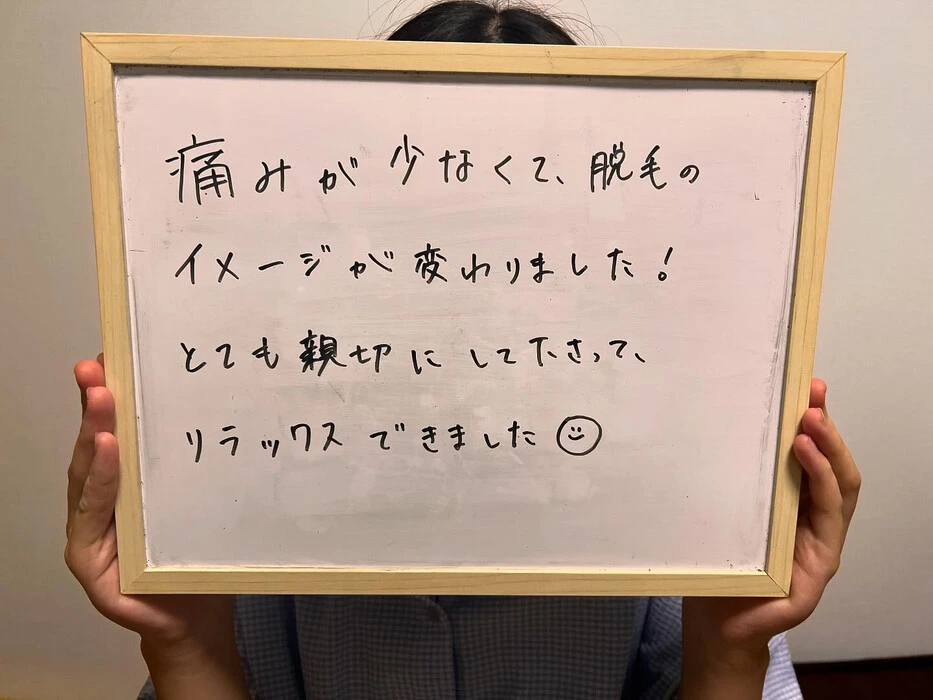 痛みが少なくて、脱毛の
イメージが変わりました!
とても親切にして下さって、
リラックスできました